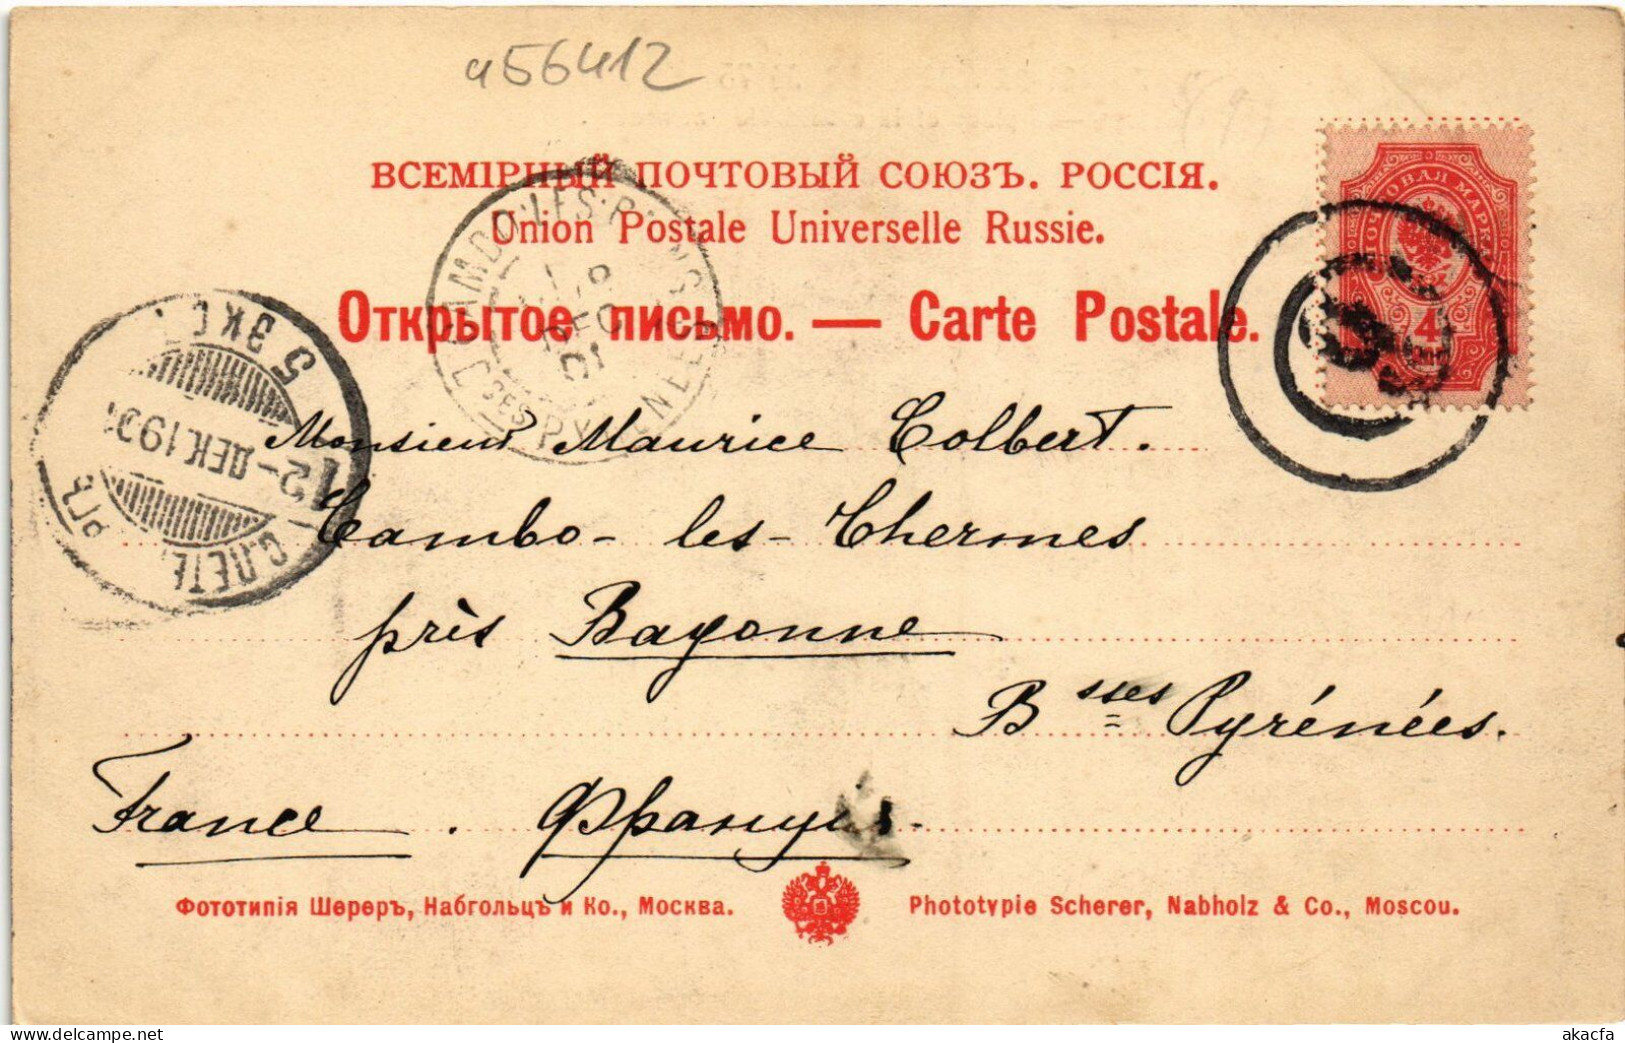 456412
ВСЕМІРНЫЙ ПОЧТОВЫЙ СОЮЗЪ. РОССІЯ.
Union Postale Universelle Russie.
Открытое письмо. — Carte Postale.
ПОЧТОВАЯ МАРКА
4
CAMBO·LES·
PYRÉNÉES
5 ЭКС.
12-ДЕК.190
С.ПЕТЕ
РГЪ
Monsieur Maurice Colbert.
Cambo-les-Thermes
près Bayonne
Bsses Pyrénées.
France. Франція.
Фототипія Шереръ, Набгольцъ и Ко., Москва.
Phototypie Scherer, Nabholz & Co., Moscou.
akacfa